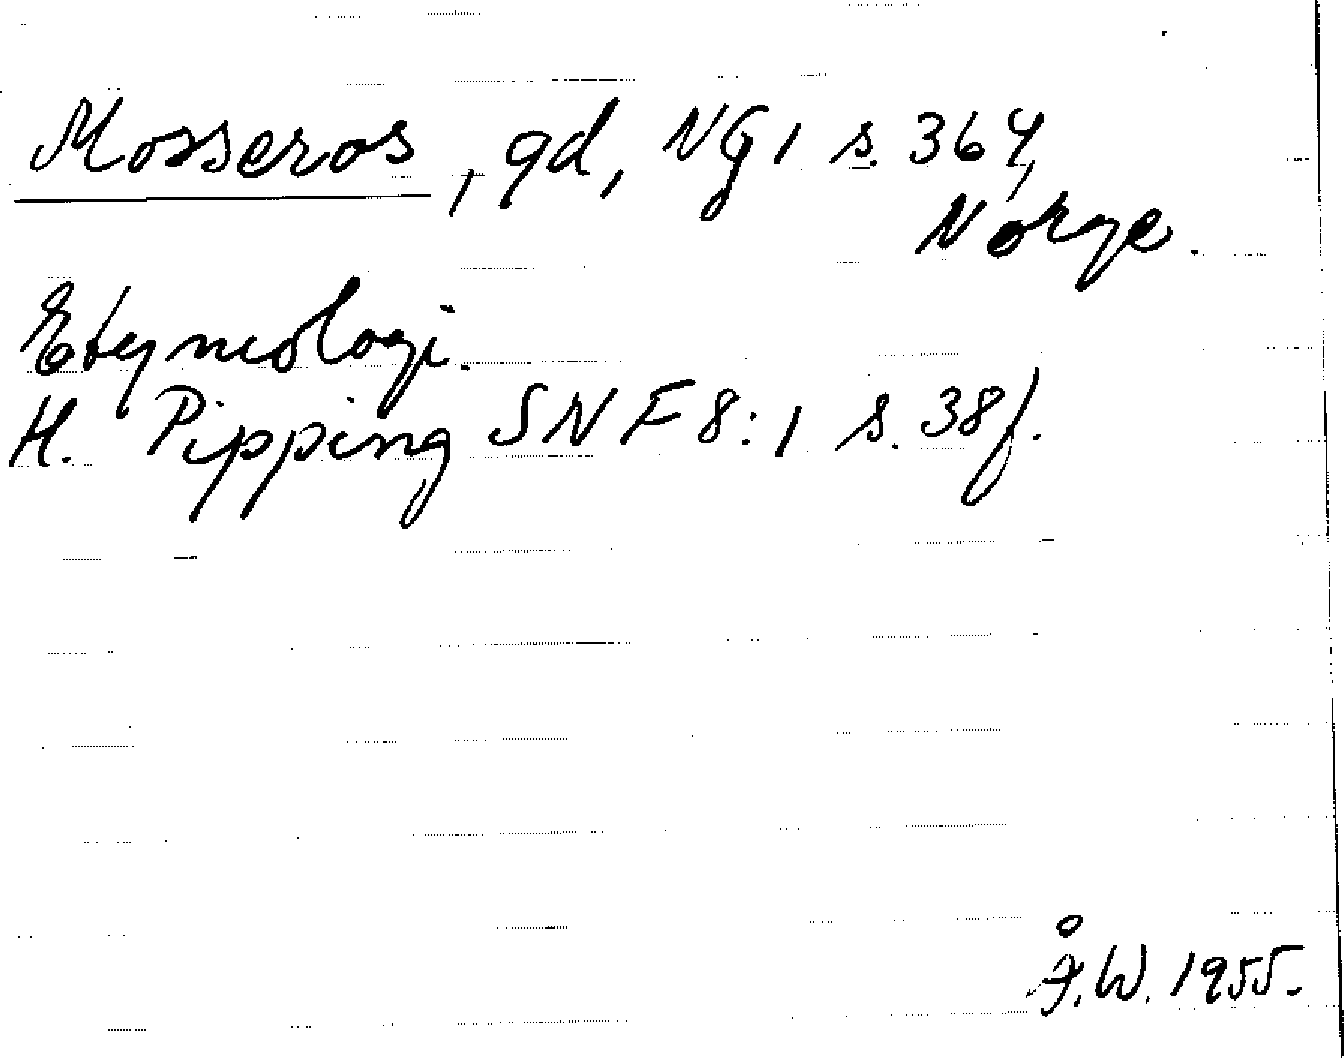 Mosseros, gd, NG 1 s. 364,
Norge.
Etymologi.
H. Pipping SNF 8:1 s. 38f.
Å.W. 1955.